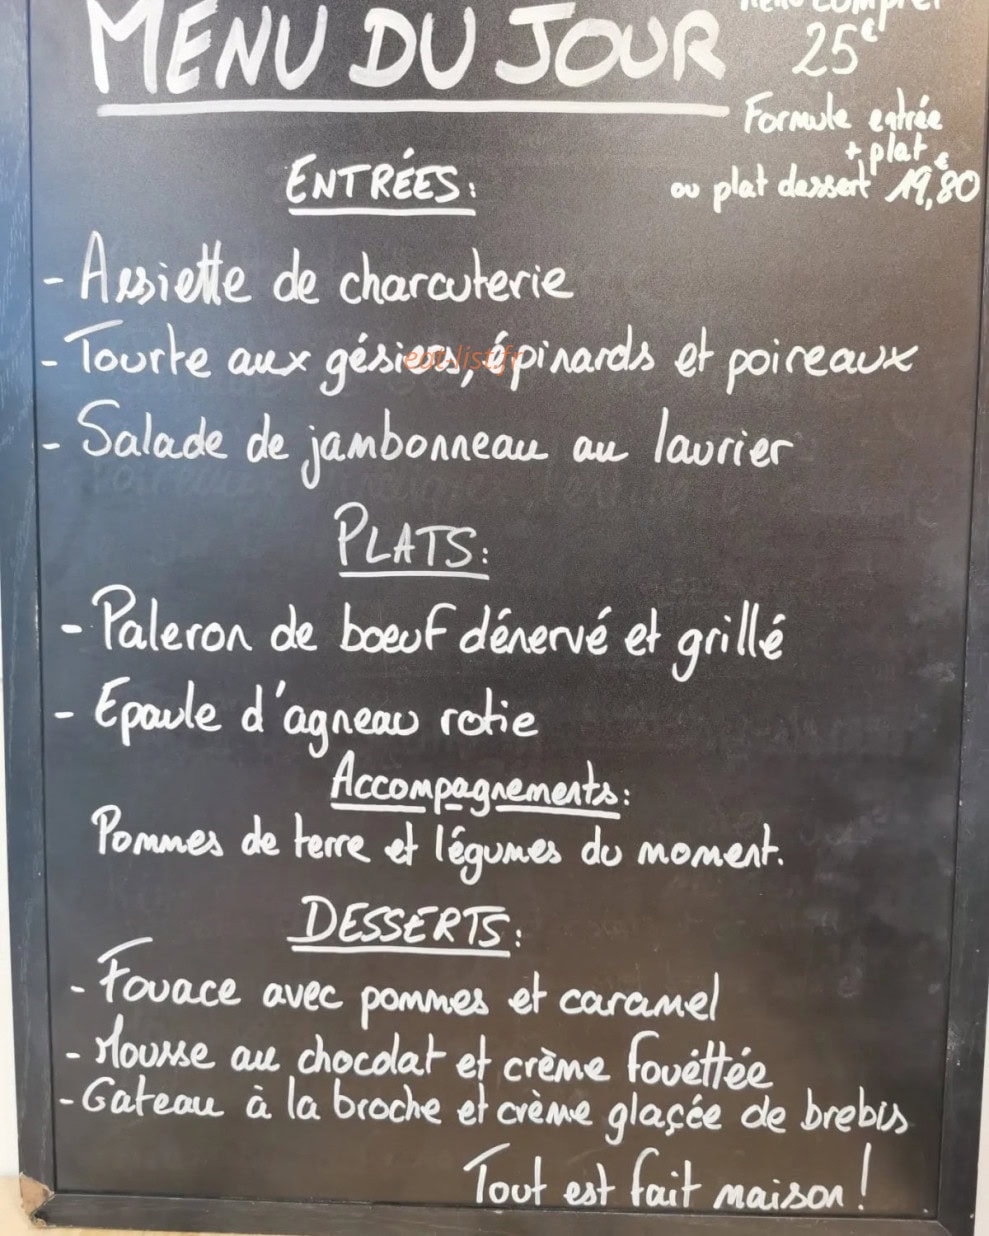 MENU DU JOUR
Menu complet
25€
Formule entrée
+ plat
ou plat dessert 19,80€
ENTRÉES:
- Assiette de charcuterie
- Tourte aux gésiers, épinards et poireaux
eat-list.fr
- Salade de jambonneau au laurier
PLATS:
- Paleron de boeuf dénervé et grillé
- Epaule d'agneau rotie
Accompagnements:
Pommes de terre et légumes du moment.
DESSERTS:
- Fouace avec pommes et caramel
- Mousse au chocolat et crème fouéttée
- Gateau à la broche et crème glaçée de brebis
Tout est fait maison!